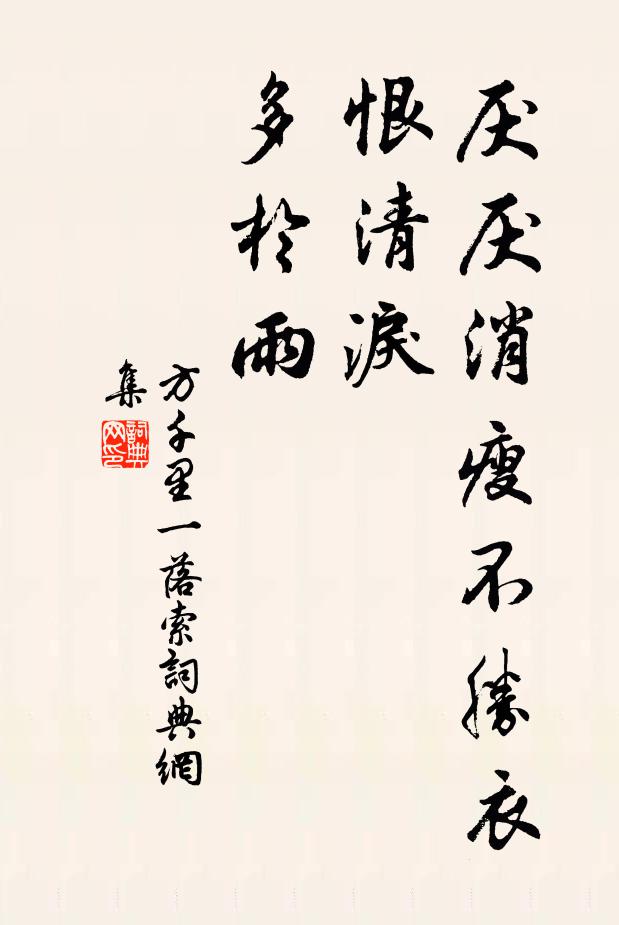 厌厌消瘦不勝衣
恨清淚
多於雨
方千里一落索詞典網
集
詞典
网印